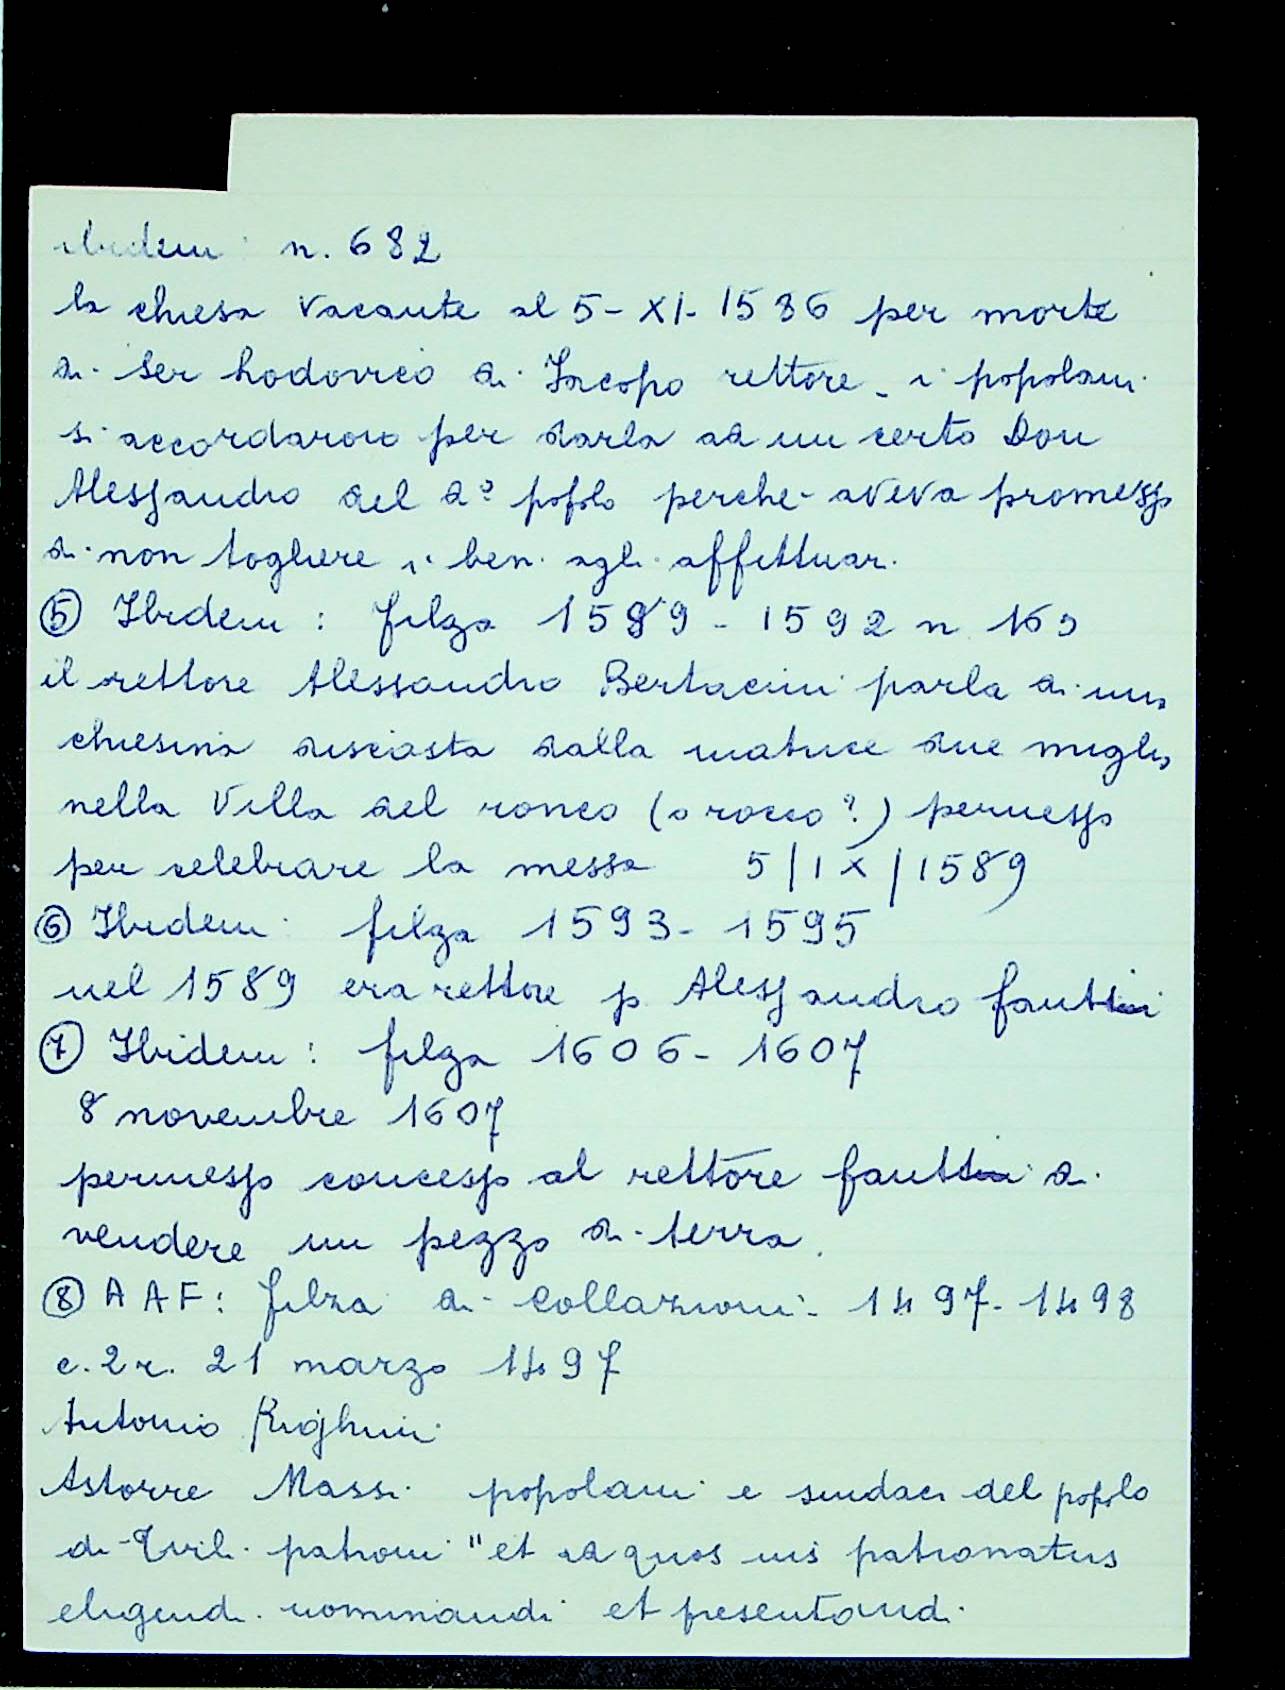 ibidem: n. 682
la chiesa vacante al 5-XI-1586 per morte
di ser Lodovico di Jacopo rettore - i popolani
si accordarono per darla ad un certo Don
Alessandro del d° popolo perche aveva promesso
di non togliere i beni agli affittuari.
⑤ Ibidem: filza 1589-1592 n 169
il rettore Alessandro Bertacini parla di una
chiesina discosta dalla matrice due miglia
nella Villa del ronco (o rocco?) permesso
per celebrare la messa 5/IX/1589
⑥ Ibidem: filza 1593-1595
nel 1589 era rettore p. Alessandro
⑦ Ibidem: filza 1606-1607
8 novembre 1607
permesso concesso al rettore di
vendere un pezzo di terra.
⑧ AAF: filza di Collazioni - 1497-1498
c. 2r. 21 marzo 1497
Antonio Righini
Astorre Massi popolani e sindaci del popolo
di patroni "et ad quos ius patronatus
eligendi nominandi et presentandi